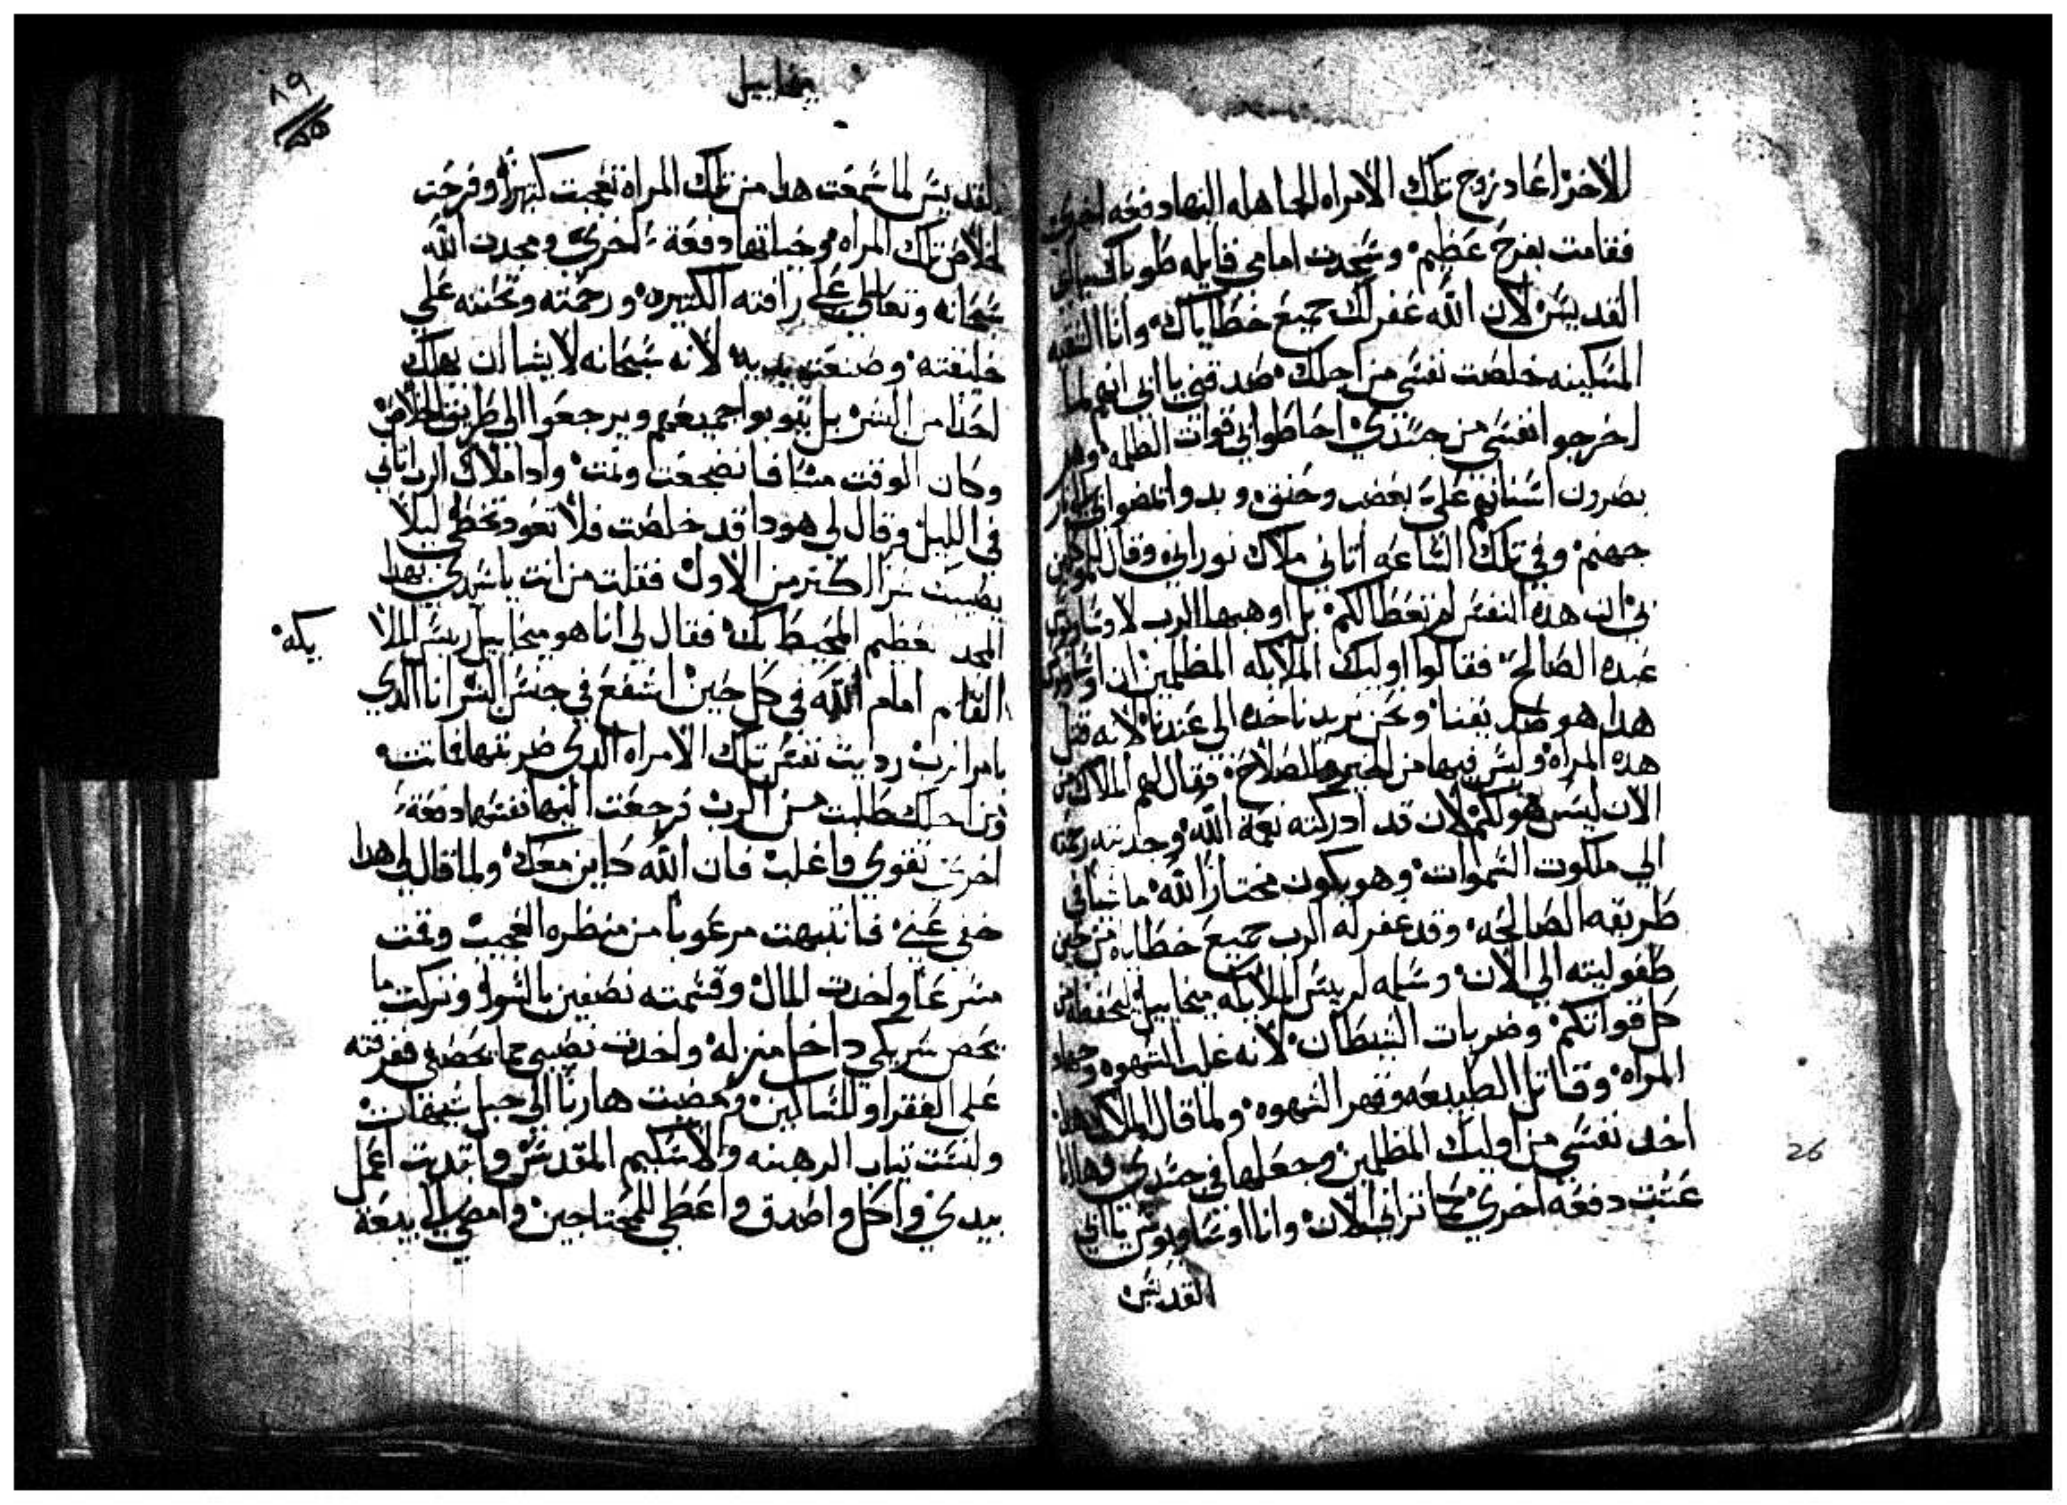 للاخر اعاد زوج تلك الامراه الجاهله اليها دفعه اخرى
فقامت بفرح عظيم وسجدت امامي قايله طوباك يا ابي
القديس لان الله غفر لك جميع خطاياك وانا الشقيه
المسكينه خلصت نفسي من اجلك صدقني يا ابي انهم لما
اخرجوا نفسي من جسدي احاطوا بي قوات الظلمه وهم
يصرون اسنانهم علي بغضب وحنق وبدوا يمضوا بي الي
جهنم وفي تلك الساعه اتاني ملاك نوراني وقال للموكلين
بي ان هذه النفس لم تعطا لكم بل اوهبها الرب لاوساويوس
عبده الصالح فقالوا اوليك الملايكه المظلمين ان اوساويوس
هدا هو صديقنا ونحن نريد ناخده الي عندنا لانه قتل
هده المراه وليس فيها من الخير والصلاح فقال لهم الملاك من
الان ليس هو لكم لان قد ادركته نعمة الله وجدبته رحمته
الي ملكوت السموات وهو يكون مختارا لله ماشيا في
طريقه الصالحه وقد غفر له الرب جميع خطاياه من حين
طفوليته الي الان وسلمه لرييس الملايكه ميخاييل ليحفظه من
كل قواتكم وضربات الشيطان لانه غلب الشهوه وجهاد
المراه وقاتل الطبيعه وقهر الشهوه ولما قال الملاك هدا
اخد نفسي من اوليك المظلمين وجعلها في جسدي وها انا
عشت دفعه اخري كما تراني الان وانا اوساويوس يا ابي
القديس
26
ميخاييل
٨٩
القديس لما سمعت هدا من تلك المراه تعجبت كثيرا وفرحت
لخلاص تلك المراه وحياتها دفعة اخري ومجدت الله
سبحانه وتعالي علي رافته الكتيره ورحمته وتحننه علي
خليقته وصنعة يديه لانه سبحانه لا يشا ان يهلك
احدا من البشر بل يتوبوا جميعهم ويرجعوا الي طريق الخلاص
وكان الوقت مسا فانضجعت ونمت وادا ملاك الرب اتاني
في الليل وقال لي هودا قد خلصت فلا تعود تخطي ليلا
يصيبك شر اكتر من الاول فقلت من انت يا سيدي بهدا
المجد العظيم المحيط بك فقال لي انا هو ميخاييل رييس الملا
يكه
القايم امام الله في كل حين اشفع في جنس البشر انا الدي
بامر الرب رديت نفس تلك الامراه الدي ضربتها فماتت
ومن اجلك طلبت من الرب فرجعت اليها نفسها دفعة
اخري تقوي واغلب فان الله كاين معك ولما قال لي هدا
خفي عني فانتبهت مرعوبا من منظره العجيب وقمت
مسرعا واخدت المال وقسمته نصفين بالسوا وتركت ما
يخص شريكي داخل منزله واخدت نصيبي مما يخصني ففرقته
علي الفقرا والمساكين ومضيت هاربا الي جبل شيهات
ولبست تياب الرهبنه والاسكيم المقدس وابتديت اعمل
بيدي واكل واصدق واعطي للمحتاجين وامضي الي البيعة